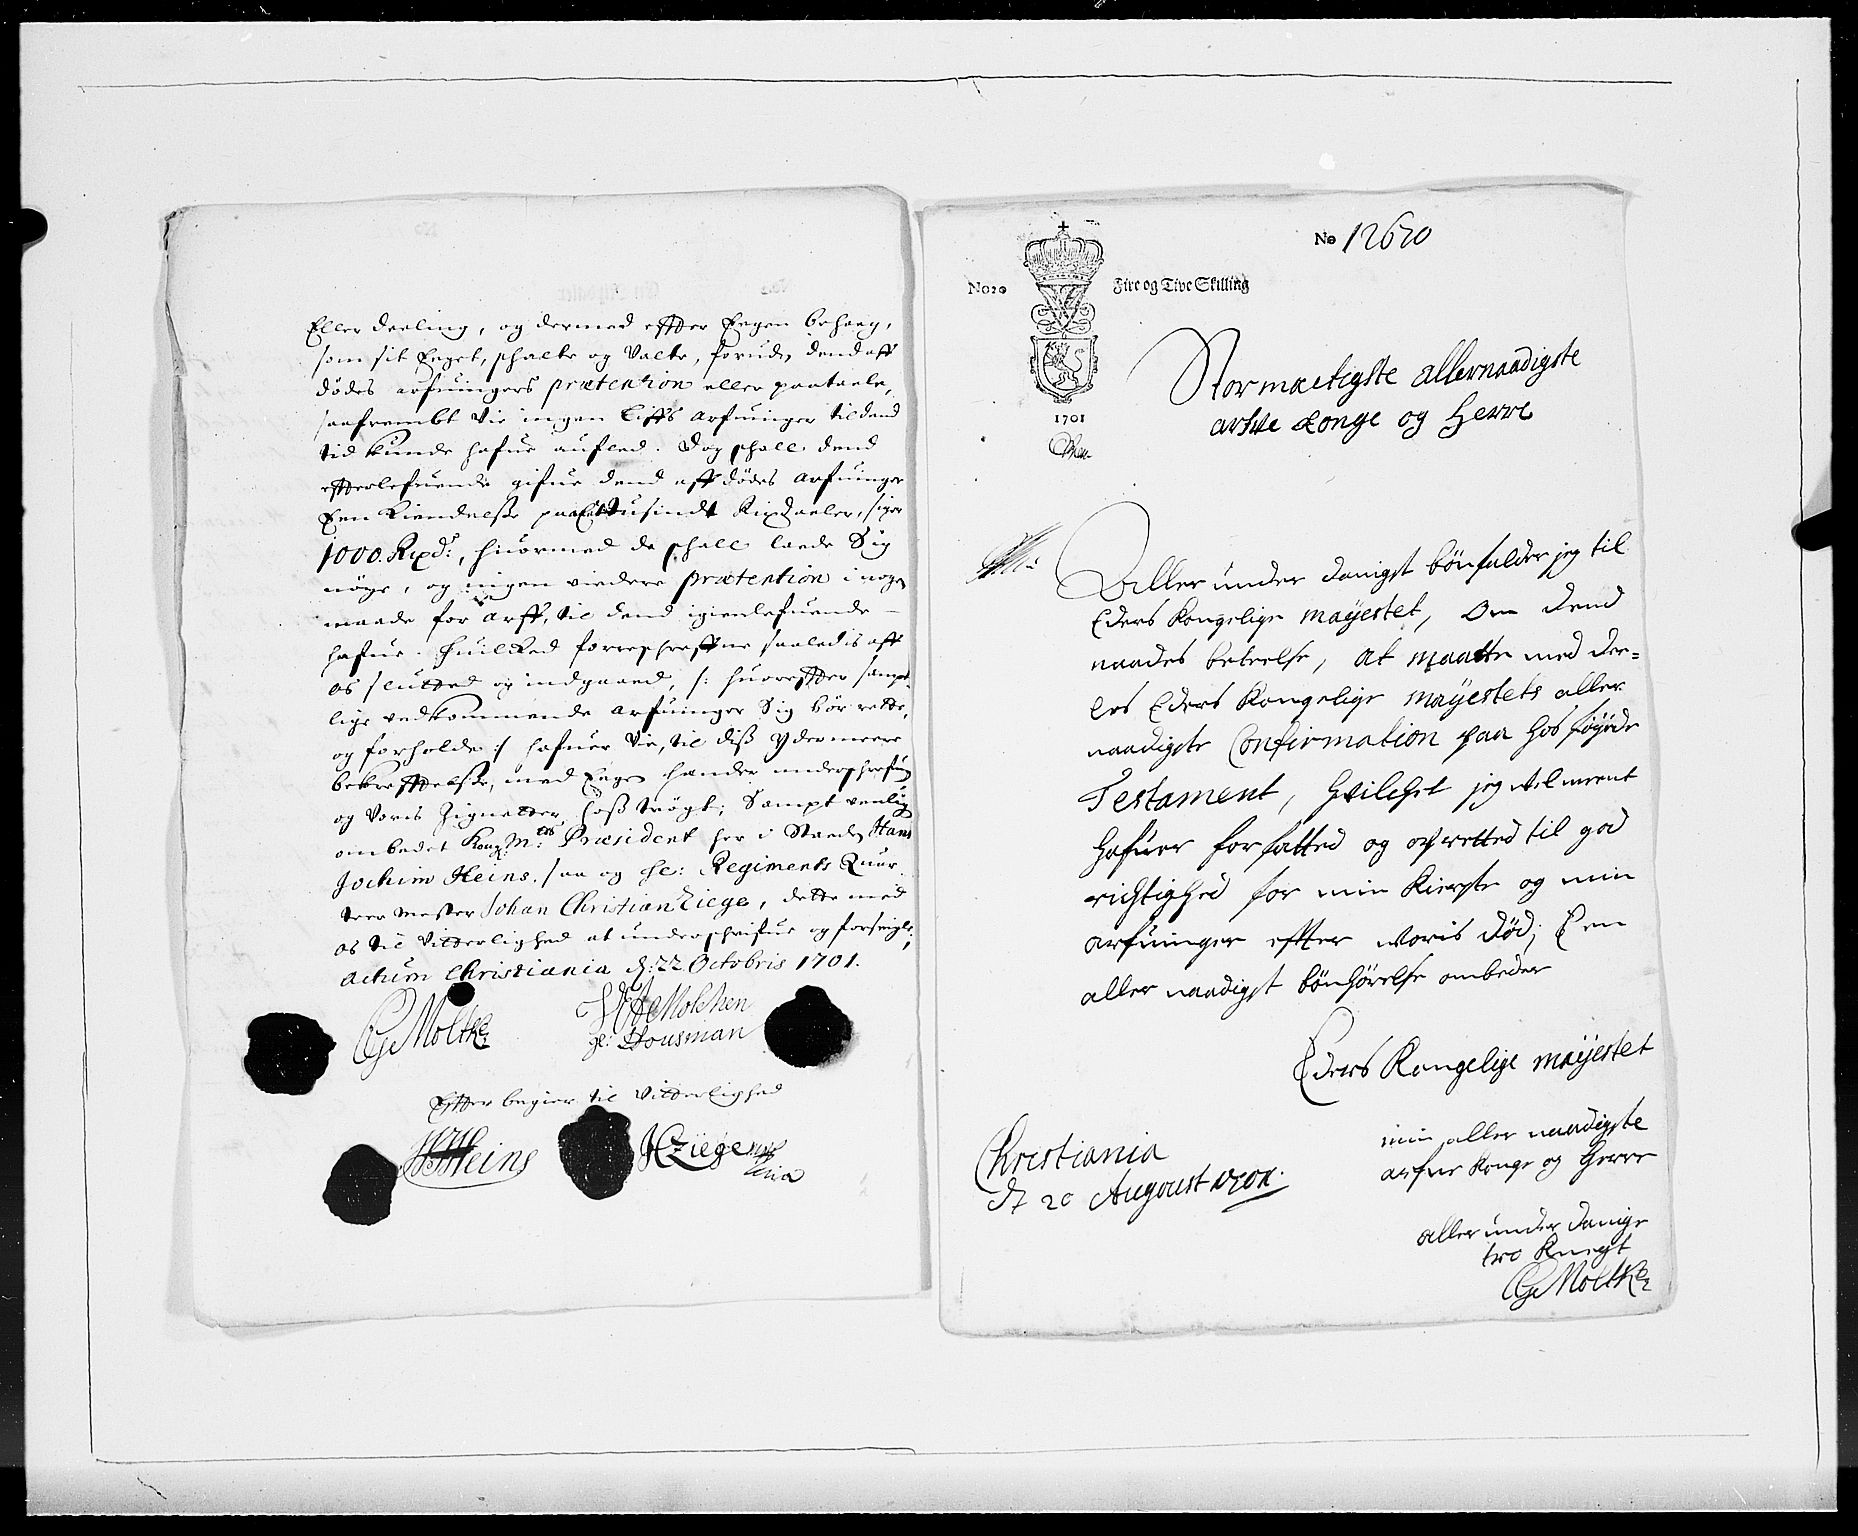 Eller deeling, og dermed effter Eegen behaag,
som sit Eeget, schalte og Valte, foruden dend aff
dødes arfuingers prætention eller paatale,
saafrembt Vie ingen Liffs arfuinger til dend
tid kunde hafue aufled. Dog schall dend
effterlefuende gifue dend aff dødes arfuinger
Een Kiendelsse paa Et tusindt Rixdaler, siger
1000. Rixd:, huormed de schall lade Sig
nøye, og ingen viedere prætention i nogen
maade for arff, til dend igienlefuende
hafue. Huilcked forreschreffne saaledis aff
os slutted og indgaaed, /: huoreffter sampt
lige vedkommende arfuinger Sig bør rette,
og forholde :/ hafuer Vie, til diß ydermeere
bekrefftelsse, med Egen hænder underschrefuen
og Voris Zignetter hoß trögt; Sampt venlig
ombedet Kong: M:tts Præsident her i Staden Hans
Jochim Heins, saa og He: Regiments Quar
teer Mester Johan Christian Ziege, dette med
os til Vitterlighed at underschrifue og forseigle;
Actum Christiania d: 22 Octobris 1701.
CG Moltke
Molchen
ge: Housman
Effter begier til Vitterlighed
HJ Heins
JC Ziege
No 12670
No 20
Fire og Tive Skilling
1701
Stormæctigste allernaadigste
arfve Konge og Herre
Aller under danigst bönfalder jeg til
Eders Kongelige mayestet, Om dend
naades beteelse, at maatte med dee=
les Eders Kongelige mayestets aller
naadigste Confirmation paa hos föyede
Testament, hvilchet jeg velment
hafuer forfatted og opretted til god
richtighed for min Kierste og min
arfuinger effter woris död; Een
aller naadigst bönhörelse ombeder
Eders Kongelige mayestet
min aller naadigste
arfue Konge og Herre
Christiania
d 20 Augoust 1701.
aller under danige
tro Knegt
CG Moltke